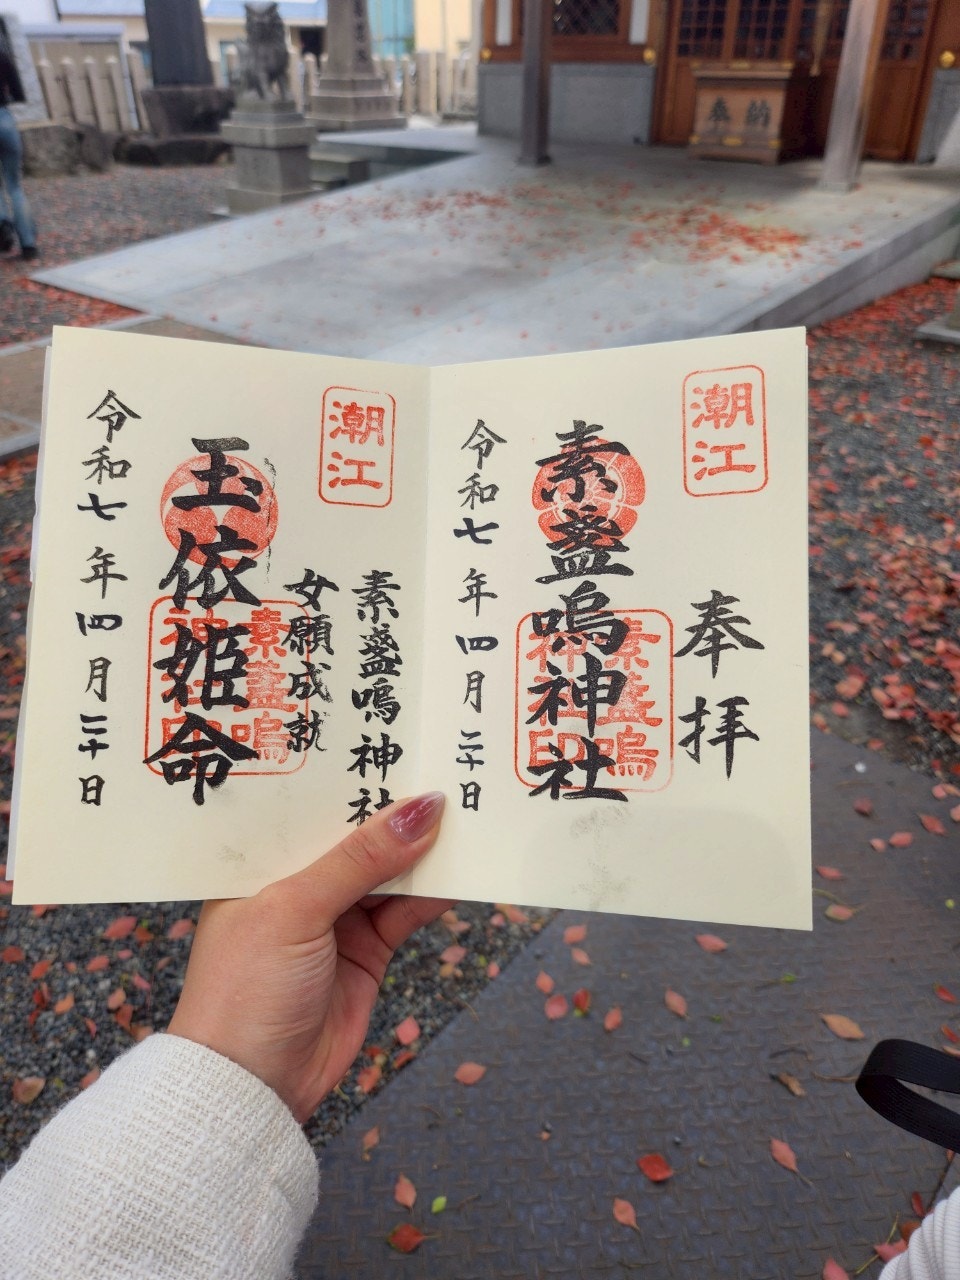 奉納
潮江
奉拝
素盞嗚神社
素盞嗚
神社印
令和七年四月二十日
潮江
素盞嗚神社
女願成就
玉依姫命
素盞嗚
神社印
令和七年四月二十日